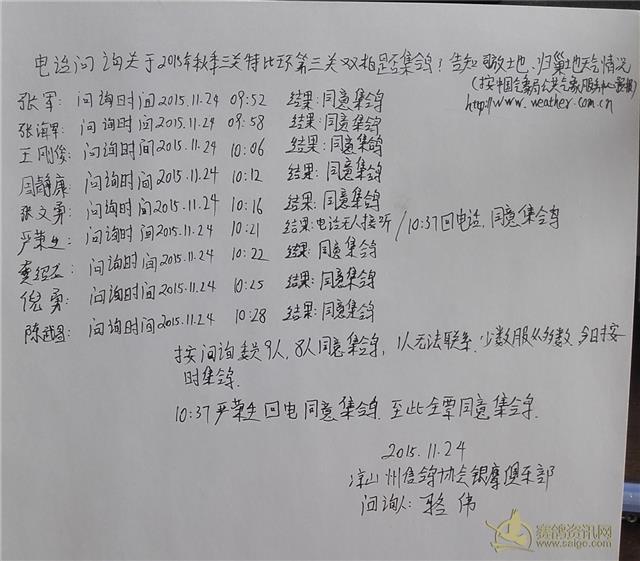 电话问询关于2015年秋季三关特比环第三关双拍是否集鸽？告知司放地、归巢地天气情况
(按中国气象局公共气象服务中心数据)
http://www.weather.com.cn
张军: 问询时间 2015.11.24 09:52 结果: 同意集鸽
张海军: 问询时间 2015.11.24 09:58 结果: 同意集鸽
王刚俊: 问询时间 2015.11.24 10:06 结果: 同意集鸽
周静康: 问询时间 2015.11.24 10:12 结果: 同意集鸽
张文勇: 问询时间 2015.11.24 10:16 结果: 同意集鸽
严荣生: 问询时间 2015.11.24 10:21 结果: 电话无人接听 / 10:37回电话, 同意集鸽
龚绍: 问询时间 2015.11.24 10:22 结果: 同意集鸽
倪勇: 问询时间 2015.11.24 10:25 结果: 同意集鸽
陈武昌: 问询时间 2015.11.24 10:28 结果: 同意集鸽
按问询委员9人, 8人同意集鸽, 1人无法联系. 少数服从多数, 今日按
时集鸽.
10:37严荣生回电同意集鸽. 至此全票同意集鸽.
2015.11.24
凉山州信鸽协会银鹰俱乐部
问询人: 伟
赛鸽资讯网
www.saige.com